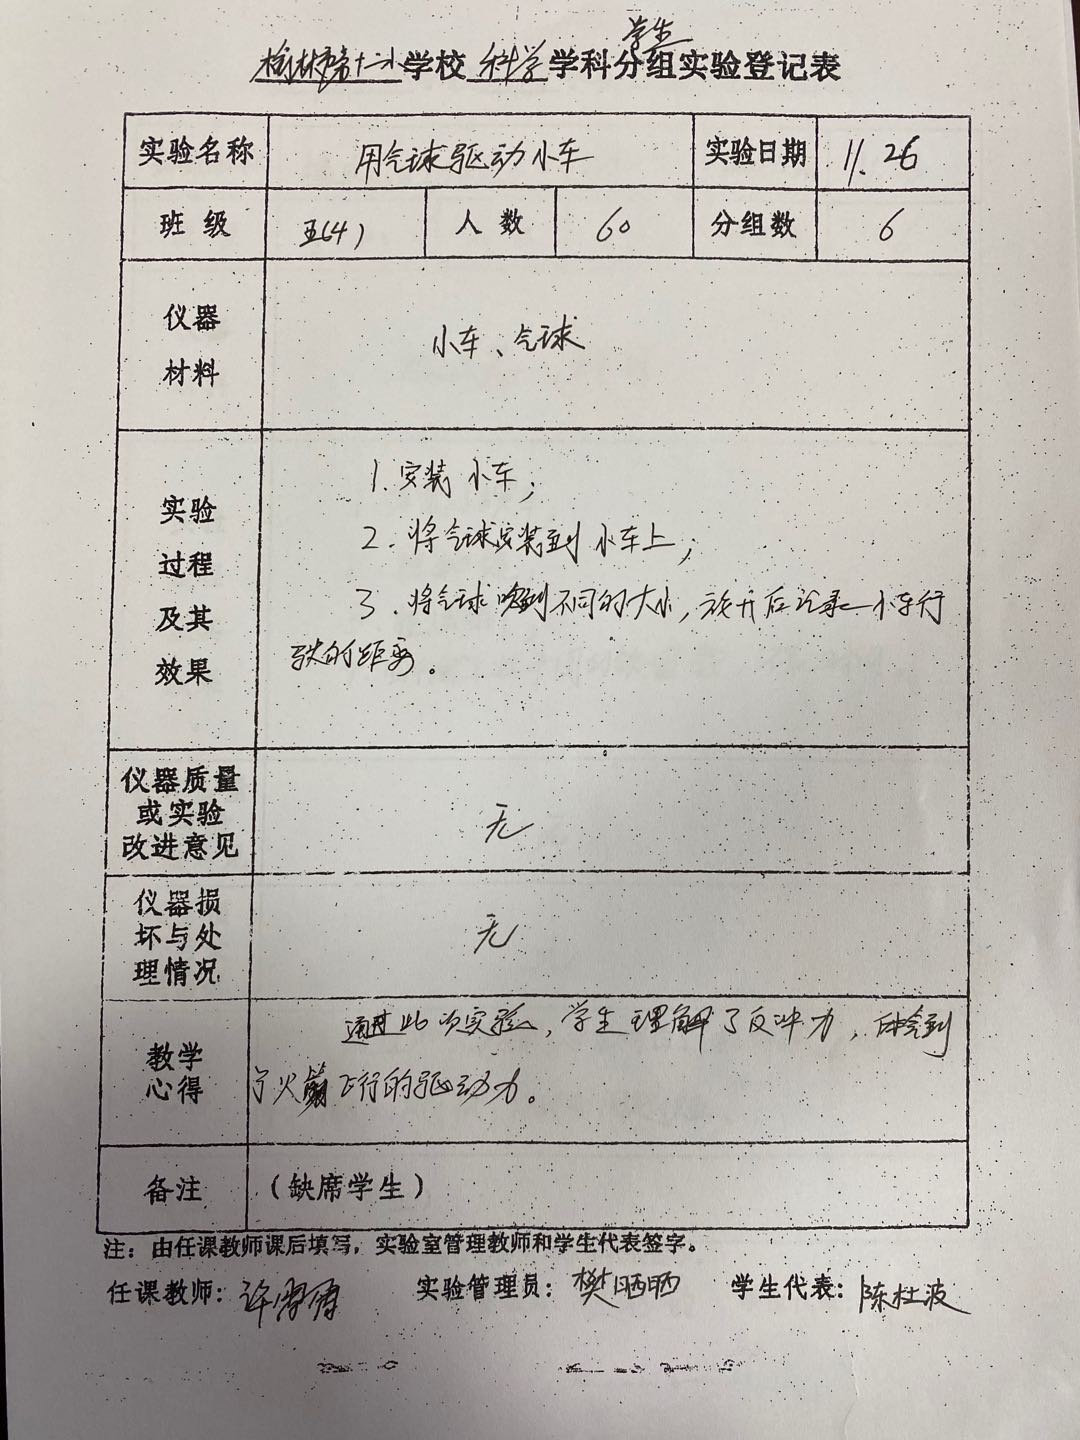 学生
榆林市第十二小学校 科学 学科分组实验登记表
实验名称 用气球驱动小车 实验日期 11.26
班 级 五(4) 人 数 60 分组数 6
仪器
材料
小车、气球
实验
过程
及其
效果
1.安装小车;
2.将气球安装到小车上;
3.将气球吹到不同的大小,放开后记录小车行
驶的距离。
仪器质量
或实验
改进意见
无
仪器损
坏与处
理情况
无
教学
心得
通过此次实验,学生理解了反冲力,体会到
了火箭飞行的驱动力。
备注 (缺席学生)
注:由任课教师课后填写,实验室管理教师和学生代表签字。
任课教师: 许 实验管理员:樊晒晒 学生代表:陈杜波